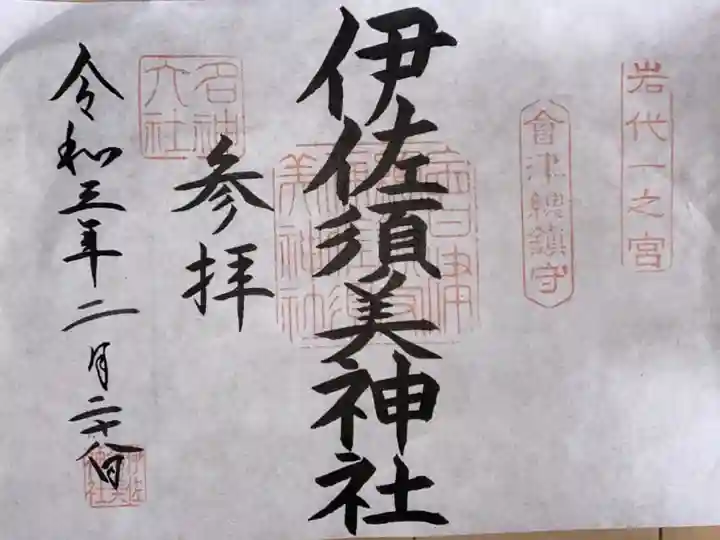 岩代一之宮
會津總鎮守
伊佐須美神社
参拝
名神
大社
令和三年二月二十八日